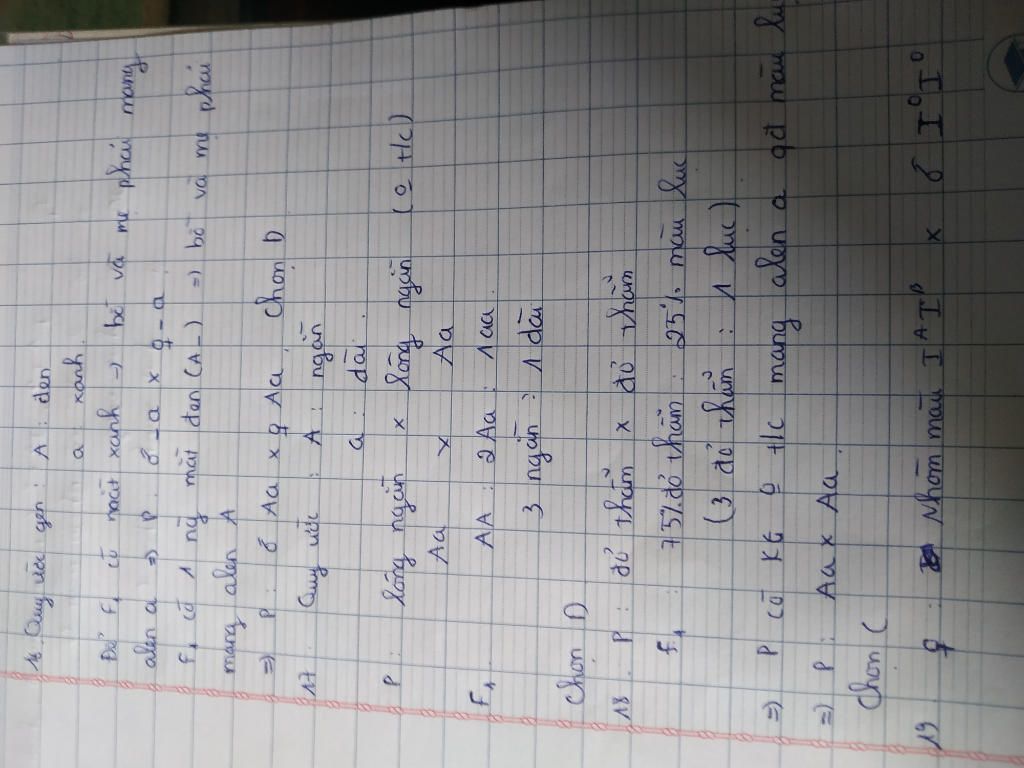 16. Quy ước gen : A : đen
a : xanh.
Để F1 có mắt xanh → bố và mẹ phải mang
alen a => P : ♂ _ a x ♀ _ a
F1 có 1 ng mắt đen (A_) => bố và mẹ phải
mang alen A
=> P : ♂ Aa x ♀ Aa. Chọn D
17. Quy ước : A : ngắn
a : dài.
P : lông ngắn x lông ngắn ( o + tc)
Aa x Aa
F1 AA : 2Aa : 1aa.
3 ngắn : 1 dài
Chọn D
18. P : đỏ thẫm x đỏ thẫm
F1 : 75% đỏ thẫm : 25% màu lục
(3 đỏ thẫm : 1 lục)
=> P có KG o tc mang alen a gđ màu
=> P : Aa x Aa.
Chọn C
19 ♀ : Nhóm máu I^A I^B x ♂ I^O I^O